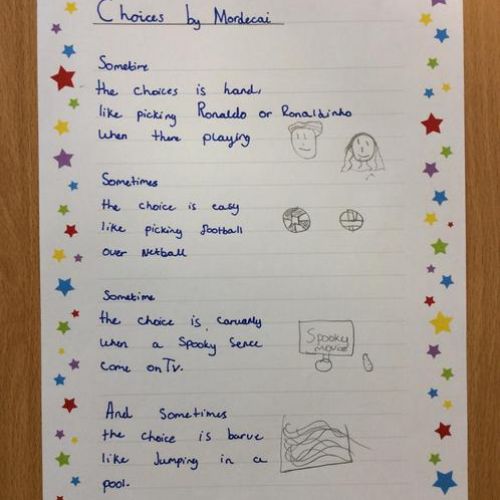 Choices by Mordecai
Sometime
the choices is hard,
like picking Ronaldo or Ronaldinho
when there playing
Sometimes
the choice is easy
like picking football
over Netball
Sometime
the choice is
when a Spooky Sence
come on Tv.
Spooky
movie
And Sometimes
the choice is barve
like Jumping in a
pool.